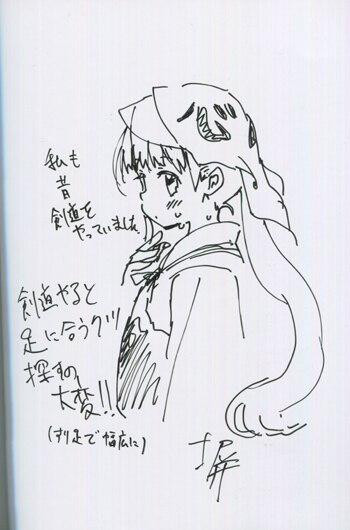 私も
昔
剣道を
やっていました。
剣道やると
足に合うクツ
探すの
大変!!
(すり足で幅広に)